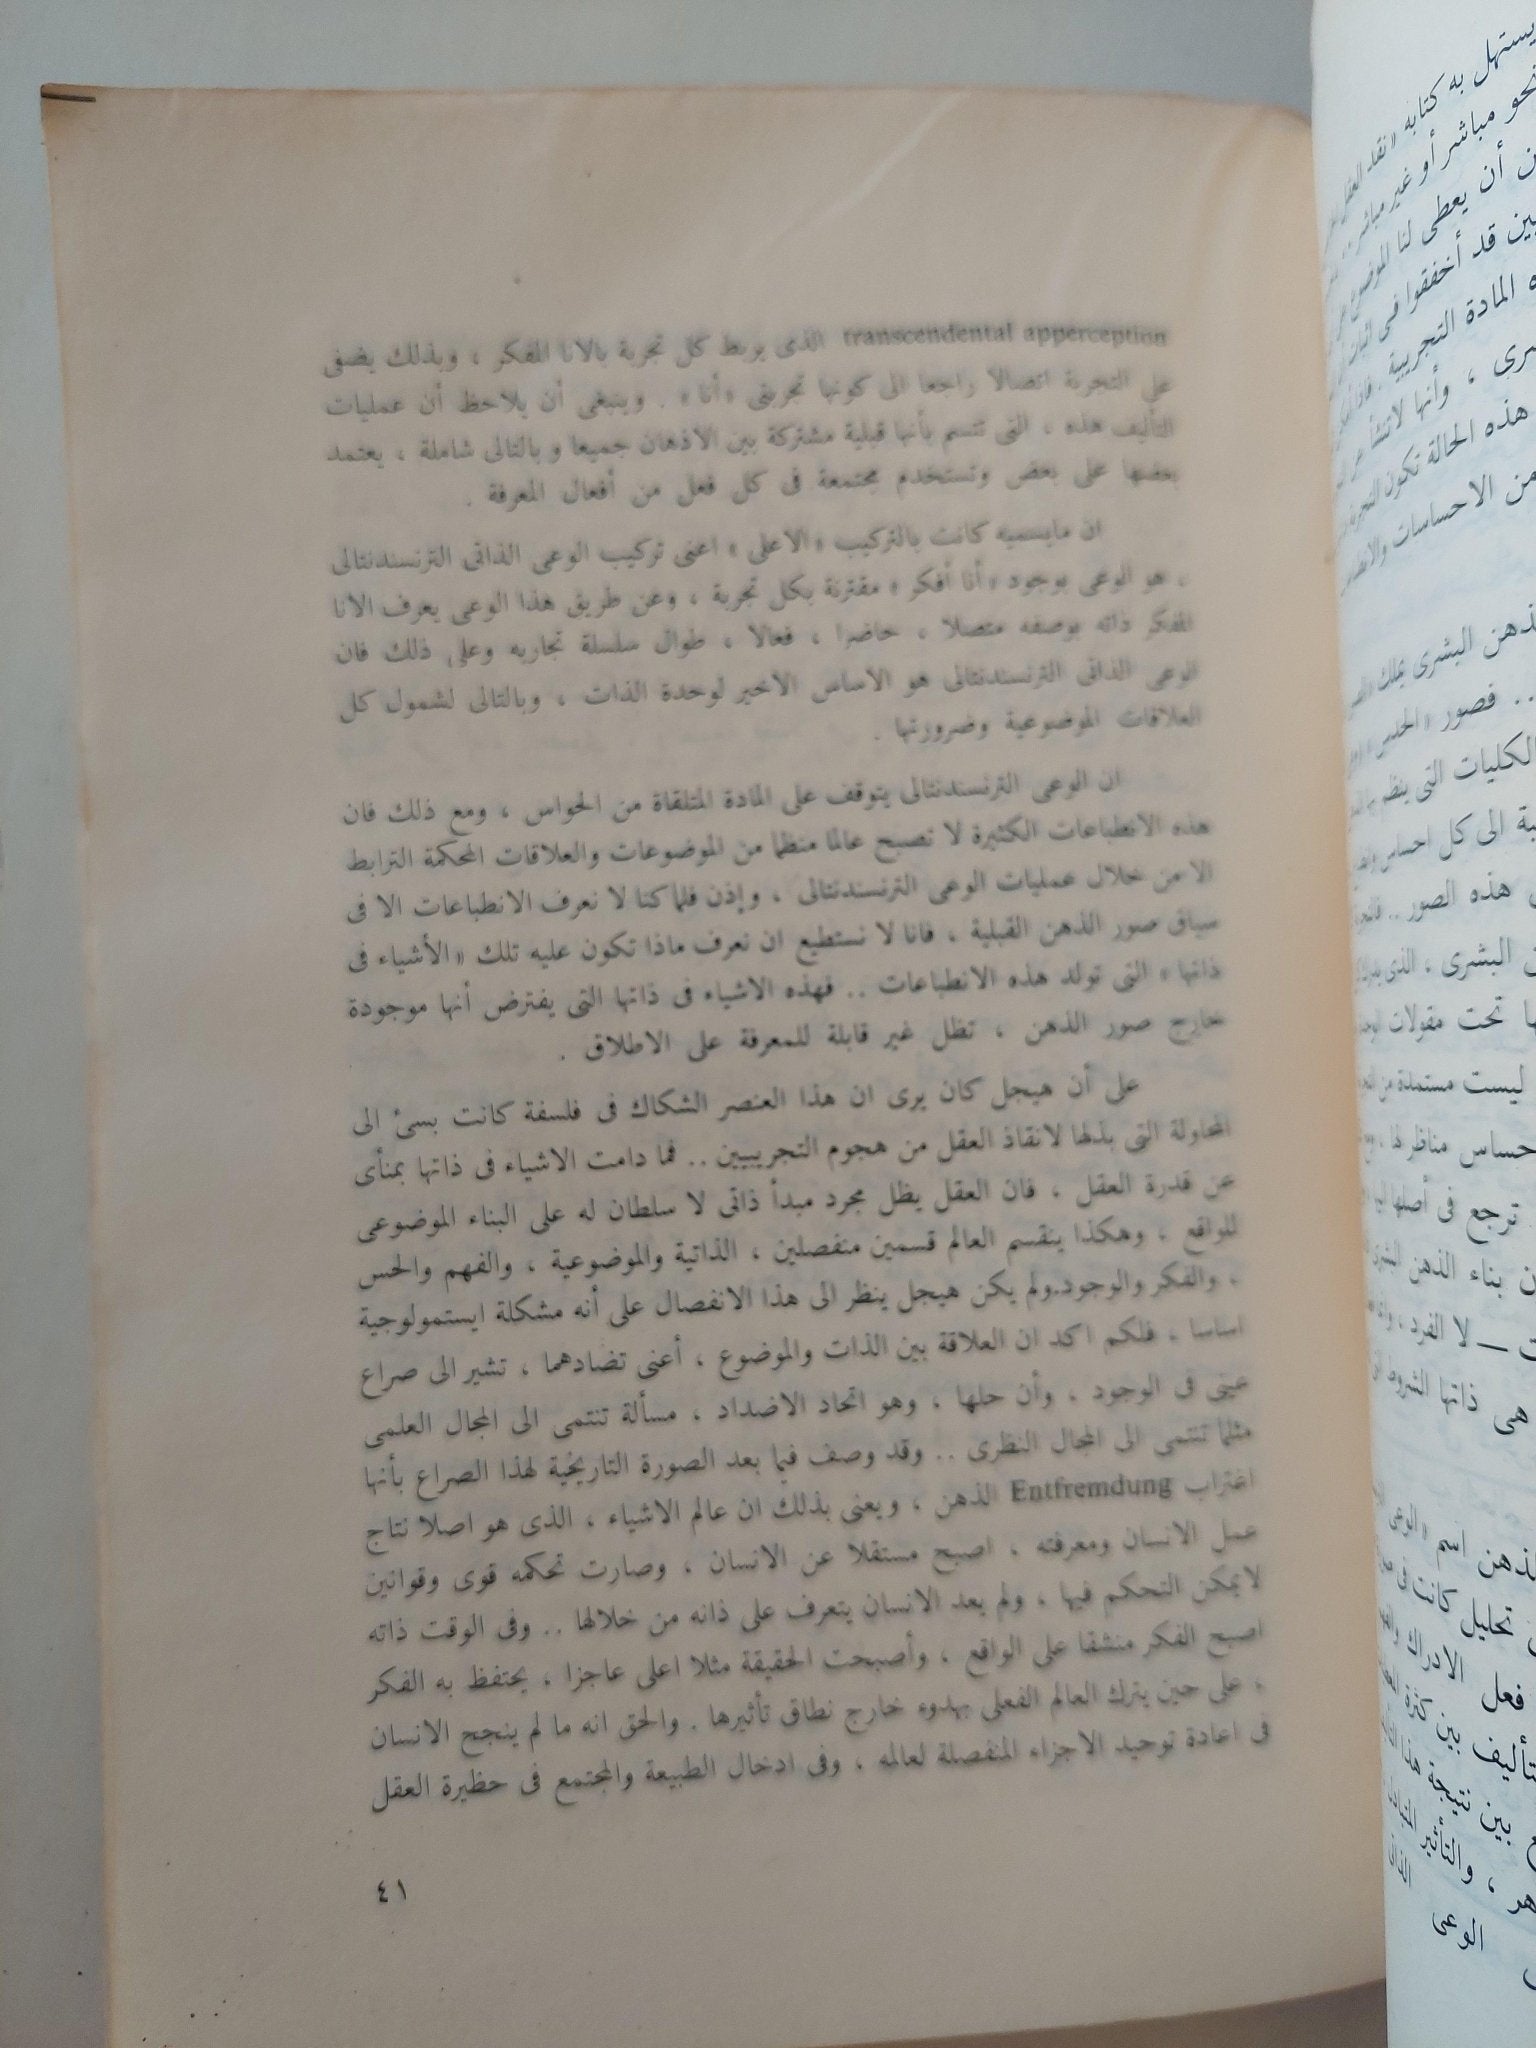 transcendental apperception الذى يربط كل تجربة بالانا المفكر ، وبذلك يضفى
على التجربة اتصالا راجعا الى كونها تجربتى «أنا» . وينبغى أن يلاحظ أن عمليات
التأليف هذه ، التى تتسم بأنها قبلية مشتركة بين الاذهان جميعا وبالتالى شاملة ، يعتمد
بعضها على بعض وتستخدم مجتمعة فى كل فعل من أفعال المعرفة .
ان مايسميه كانت بالتركيب «الاعلى» اعنى تركيب الوعى الذاتى الترنسندنتالى
، هو الوعى بوجود «أنا أفكر» مقترنة بكل تجربة ، وعن طريق هذا الوعى يعرف الانا
المفكر ذاته بوصفه متصلا ، حاضرا ، فعالا ، طوال سلسلة تجاربه وعلى ذلك فان
الوعى الذاتى الترنسندنتالى هو الاساس الاخير لوحدة الذات ، وبالتالى لشمول كل
العلاقات الموضوعية وضرورتها .
ان الوعى الترنسندنتالى يتوقف على المادة المتلقاة من الحواس ، ومع ذلك فان
هذه الانطباعات الكثيرة لا تصبح عالما منظما من الموضوعات والعلاقات المحكمة الترابط
الا من خلال عمليات الوعى الترنسندنتالى ، وإذن فلما كنا لا نعرف الانطباعات الا فى
سياق صور الذهن القبلية ، فانا لا نستطيع ان نعرف ماذا تكون عليه تلك «الأشياء فى
ذاتها» التى تولد هذه الانطباعات .. فهذه الاشياء فى ذاتها التى يفترض أنها موجودة
خارج صور الذهن ، تظل غير قابلة للمعرفة على الاطلاق .
على أن هيجل كان يرى ان هذا العنصر الشكاك فى فلسفة كانت يسئ الى
المحاولة التى بذلها لانقاذ العقل من هجوم التجريبيين .. فما دامت الاشياء فى ذاتها بمنأى
عن قدرة العقل ، فان العقل يظل مجرد مبدأ ذاتى لا سلطان له على البناء الموضوعى
للواقع ، وهكذا ينقسم العالم قسمين منفصلين ، الذاتية والموضوعية ، والفهم والحس
، والفكر والوجود.ولم يكن هيجل ينظر الى هذا الانفصال على أنه مشكلة ايستمولوجية
اساسا ، فلكم اكد ان العلاقة بين الذات والموضوع ، أعنى تضادهما ، تشير الى صراع
عينى فى الوجود ، وأن حلها ، وهو اتحاد الاضداد ، مسألة تنتمى الى المجال العلمى
مثلما تنتمى الى المجال النظرى .. وقد وصف فيما بعد الصورة التاريخية لهذا الصراع بأنها
اغتراب Entfremdung الذهن ، ويعنى بذلك ان عالم الاشياء ، الذى هو اصلا نتاج
عمل الانسان ومعرفته ، اصبح مستقلا عن الانسان ، وصارت تحكمه قوى وقوانين
لايمكن التحكم فيها ، ولم يعد الانسان يتعرف على ذاته من خلالها .. وفى الوقت ذاته
اصبح الفكر منشقا على الواقع ، وأصبحت الحقيقة مثلا اعلى عاجزا ، يحتفظ به الفكر
، على حين يترك العالم الفعلى بهدوء خارج نطاق تأثيرها . والحق انه ما لم ينجح الانسان
فى اعادة توحيد الاجزاء المنفصلة لعالمه ، وفى ادخال الطبيعة والمجتمع فى حظيرة العقل
٤١
يستهل به كتابه «نقد العقل
نحو مباشر أو غير مباشر
أن يعطى لنا الموضوع
قد أخفقوا فى اثبات
المادة التجريبية
، وأنها لاتنشأ عن
هذه الحالة تكون التجربة
من الاحساسات
البشرى يملك
.. فصور «الحدس»
الكليات التى ينظم بها
الى كل احساس
هذه الصور ..
البشرى ، الذى
تحت مقولات
ليست مستمدة من
مناظر لها ،
ترجع فى أصلها
بناء الذهن البشرى
— لا الفرد ،
هى ذاتها الشروط
اسم «الوعى
تحليل كانت فى
فعل الادراك
بين كثرة
بين نتيجة هذا
، والتأثير المتبادل
الوعى الذاتى